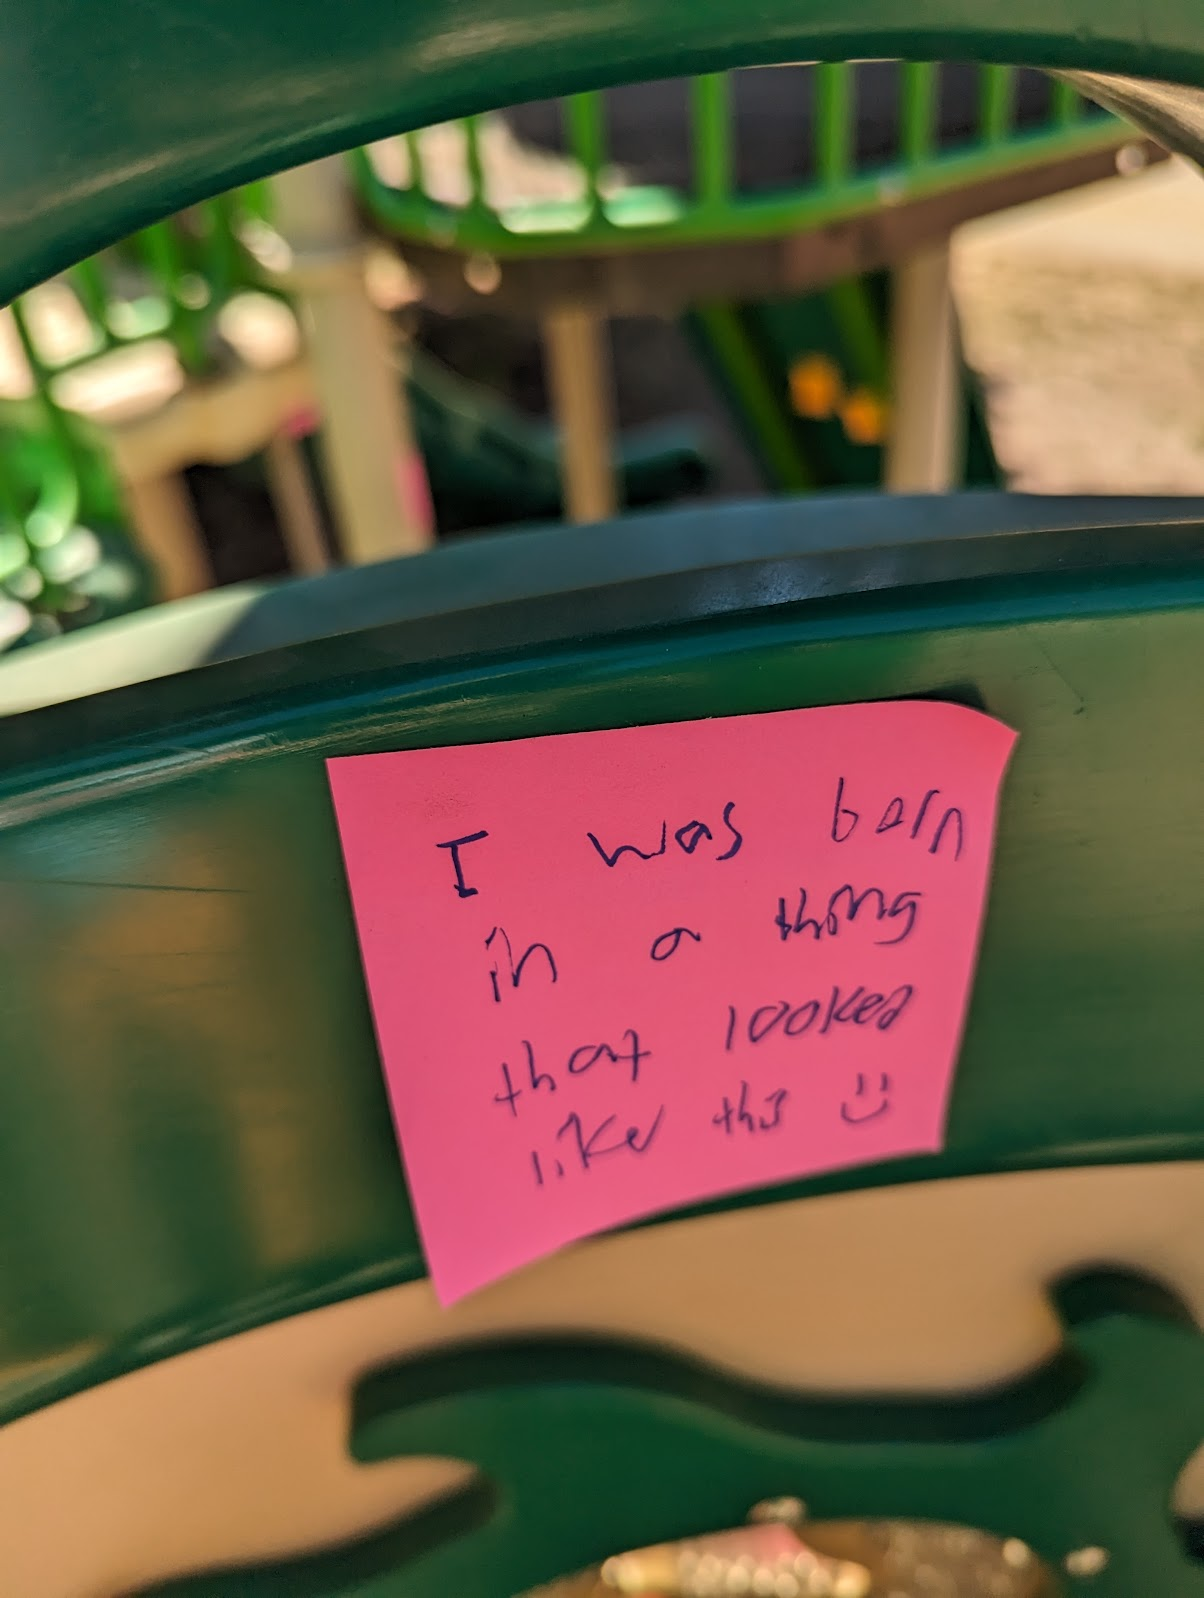 I was born
in a thing
that looked
like this :)